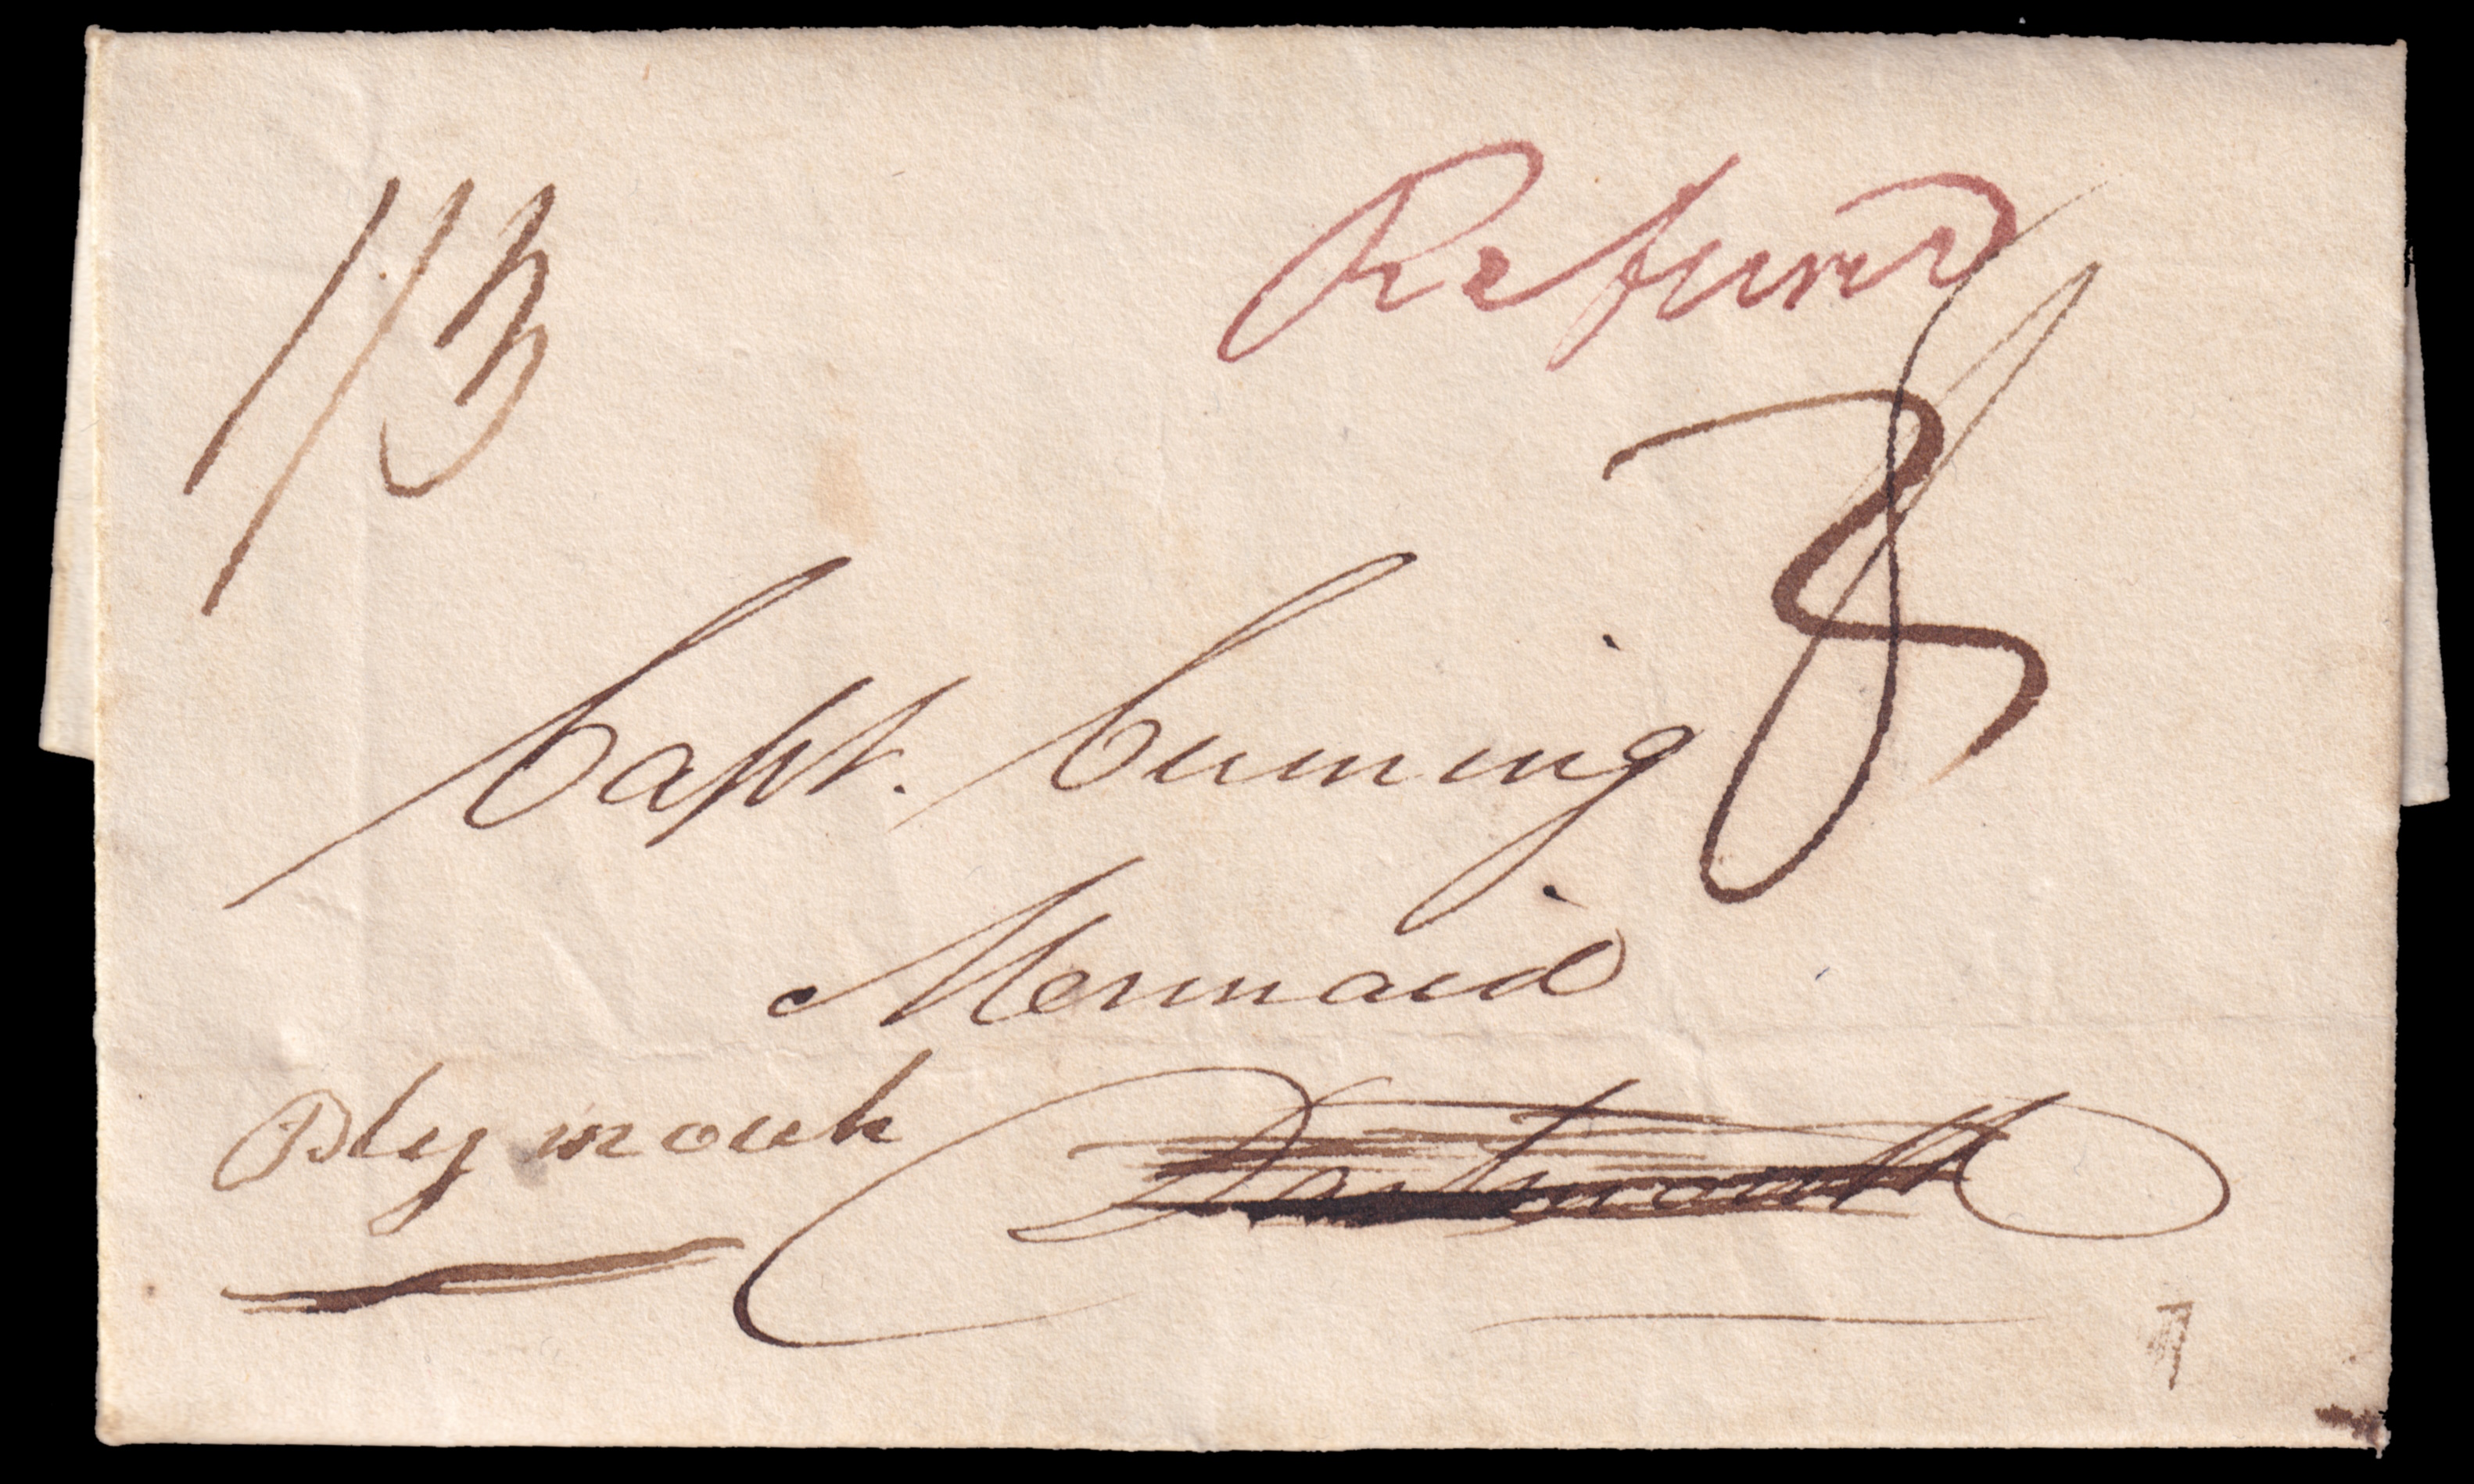 1/3
Refused
8
Capt. Cuming
Mermaid
Plymouth Dartmouth